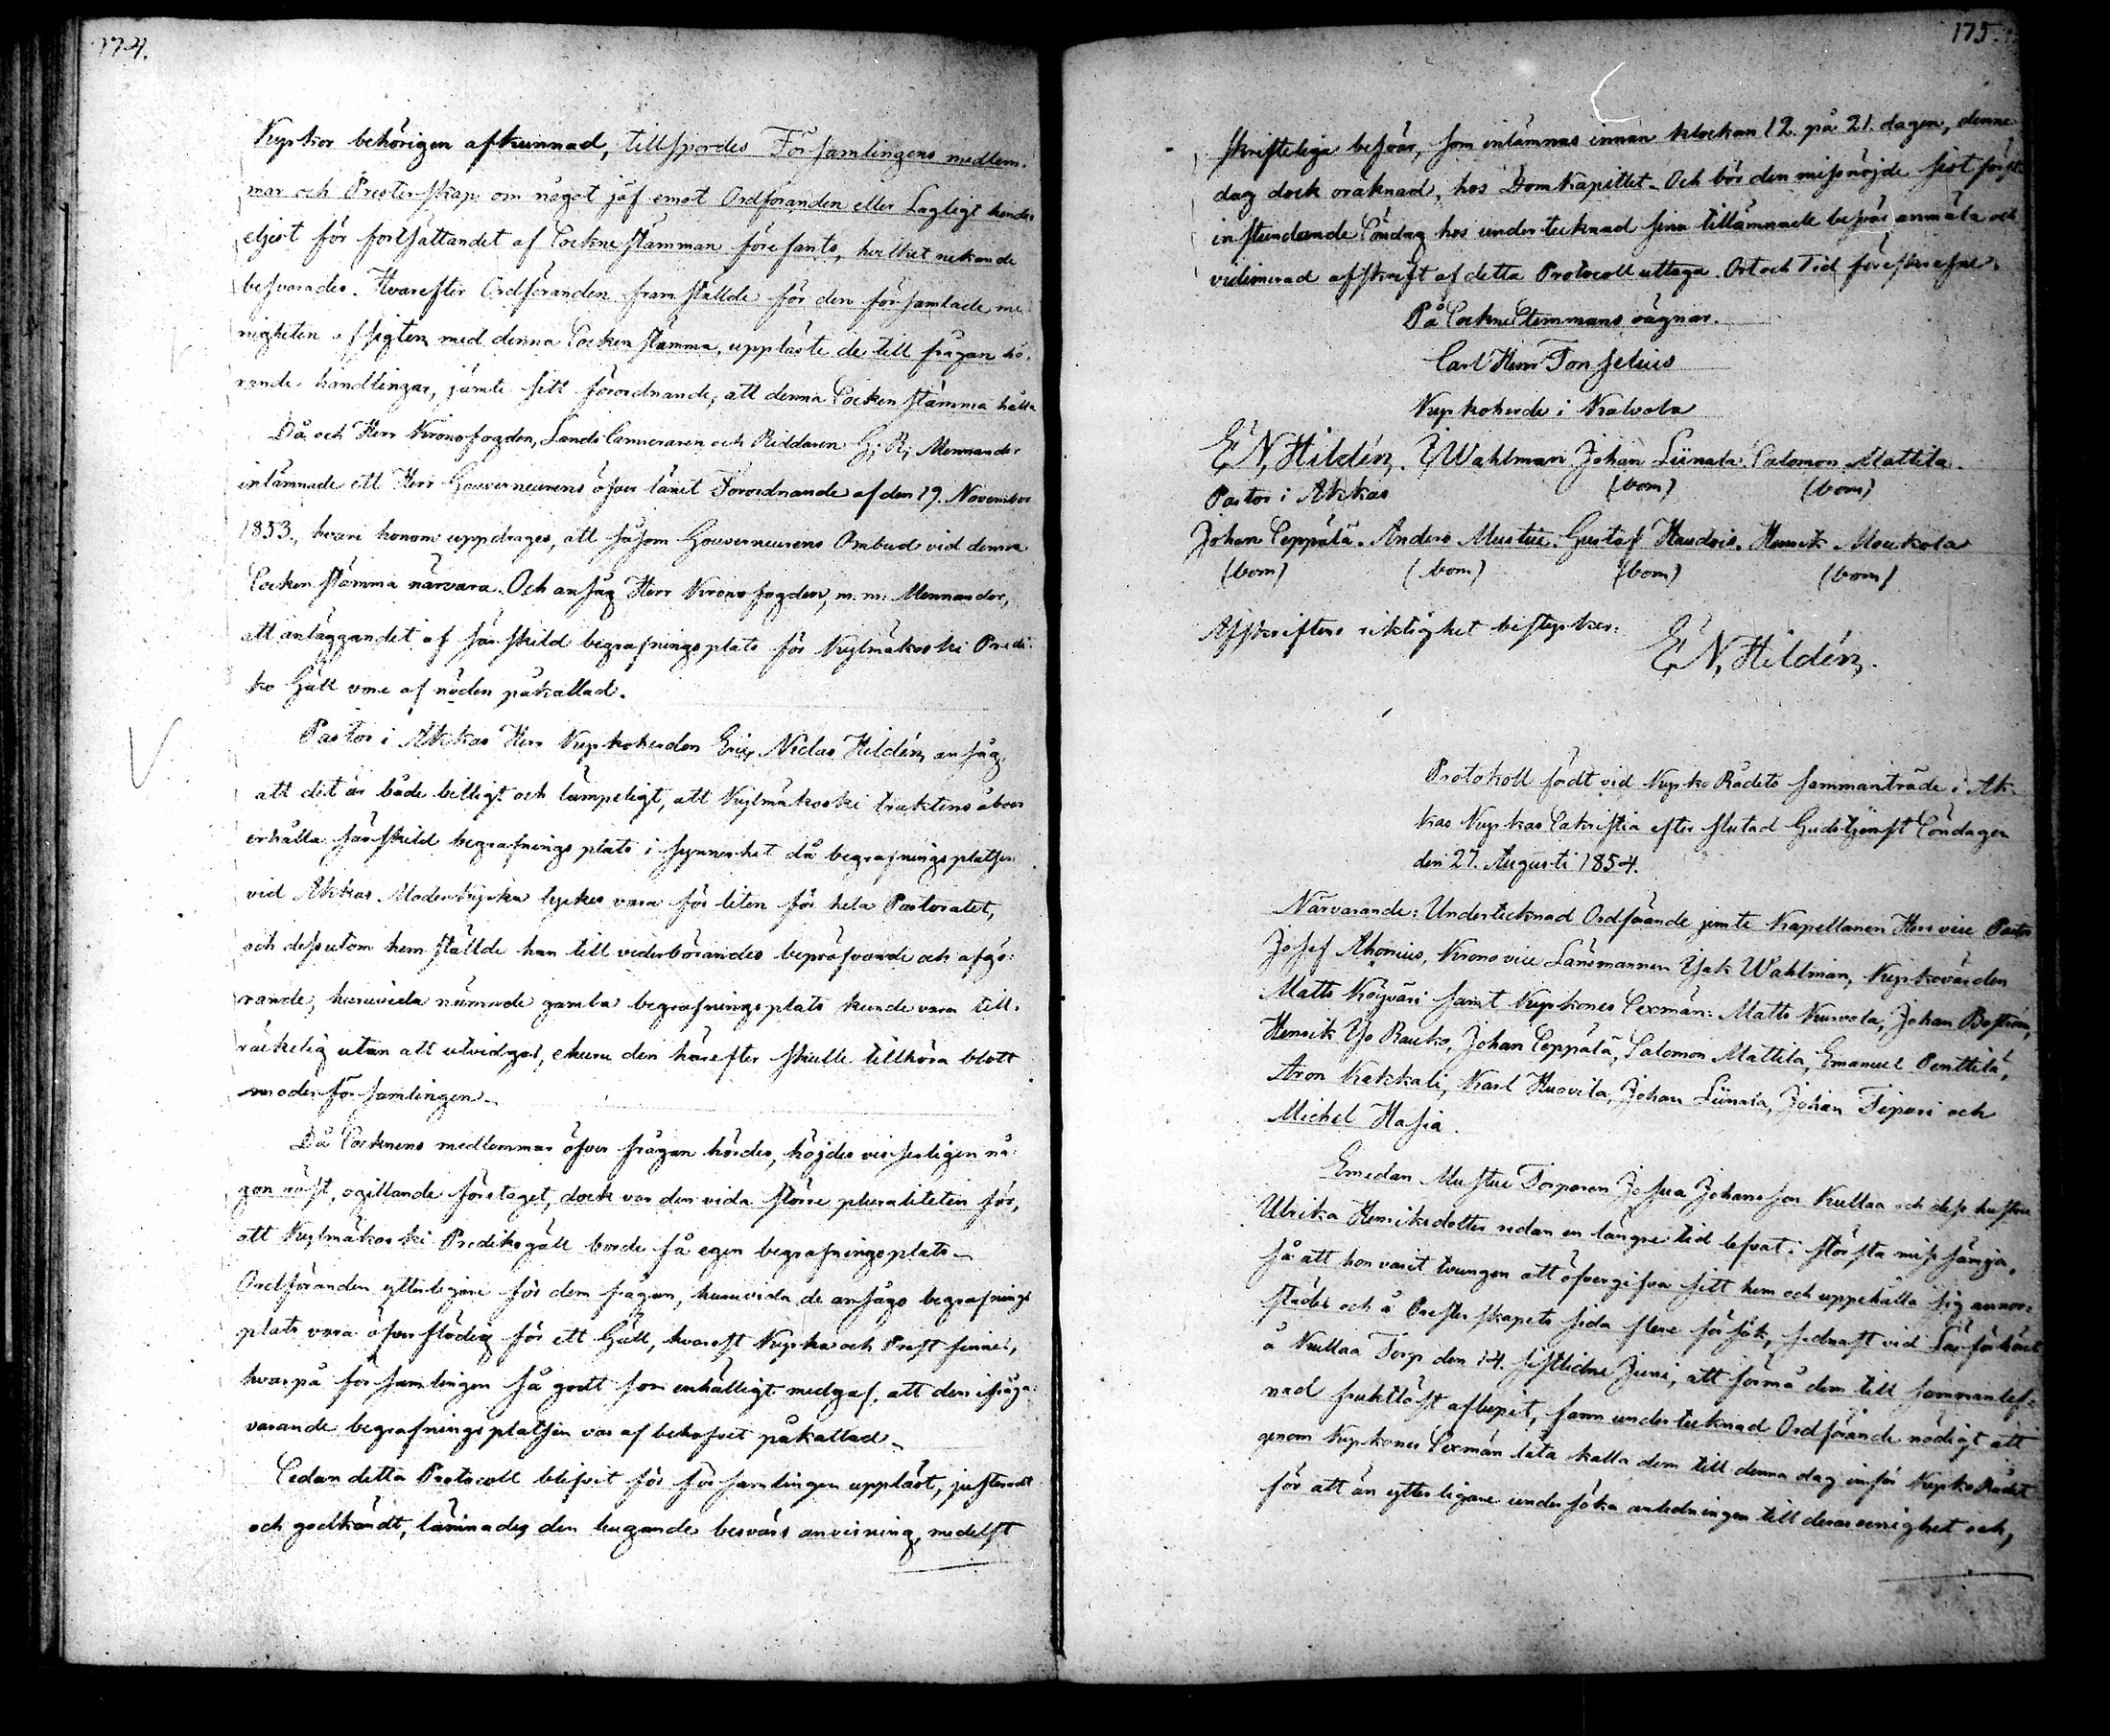 174.
Kyrkor behörigen afkunnad, tillspordes Församlingens medlem-
mar och Presterskap om något jäf emot Ordföranden eller Lagligt hinder
eljest för fortsättandet af Sockne stämman förefants, hvilket nekande
besvarades. Hvarefter Ordföranden framställde för den församlade me-
nigheten afsigten med denna Socken stämma, uppläste de till frågan hö-
rande handlingar, jämte sitt förordnande, att denna Socken stämma hålla
Då och Herr Kronofogden, Lands Cammeraren och Riddaren G. R. Mennander
inlämnade ett Herr Gouverneurens öfver länet Förordnande af den 19. November
1853, hvari honom uppdrages, att såsom Gouverneurens Ombud vid denna
Socken stämma närvara. Och ansåg Herr Kronofogden, m. m. Mennander,
att anläggandet af särskild begrafningsplats för Kylmäkoski Predi-
ko Gäll vore af nöden påkallad.
Pastor i Akkas Herr Kyrkoherden Eric Niclas Hildén, ansåg
att det är både billigt och lämpeligt, att Kylmäkoski traktens åboer
erhålla särskild begrafnings plats i synnerhet då begrafningsplatsen
vid Akkas Moder Kyrka lyckes vara för liten för hela Pastoratet,
och dessutom hemställde han till vederbörandes bepröfvande och afgö-
rande, huruvida nämnde gamla begrafningsplats kunde vara till-
räckelig utan att utvidgas, ehuru den härefter skulle tillhöra blott
moderförsamlingen.
Då Socknens medlemmar öfver frågan hördes, höjdes visserligen nå-
gon röst, ogillande företaget, dock var den vida större pluraliteten för,
att Kylmäkoski Predikogäll borde få egen begrafningsplats
Ordföranden ytterligare för dem frågan, huruvida de ansågo begrafnings
plats vara öfverflödig för ett Gäll, hvarest Kyrka och Prest finnes,
hvarpå församlingen så godt som enhälligt medgaf, att den ifråga-
varande begrafningsplatsen var af behofvet påkallad.
Sedan detta Protocoll blifvit för församlingen uppläst, justeradt
och godkändt, lämnades den klagande besvärs anvisning, medelst
175.
skrifteliga besvär, som inlämnas innan klockan 12. på 21. dagen, denne
dag dock oräknad, hos Domkapitlet. Och bör den missnöjde sist först
instundande Söndag hos undertecknad sina tillämnade besvär anmäla och
vidimerad afskrift af detta Protocoll uttaga. Ort och Tid föreskrefne.
På SockneStemmans vägnar.
Carl Henr Fonselius
Kyrkoherde i Kalvola
E. N. Hildén. I Wahlman Johan Liinala. Salomon Mattila.
Pastor i Akkas (bom) (bom)
Johan Seppälä. Anders Mustue. Gustaf Haudois. Henrik Moukola
(bom) (bom) (bom) (bom)
Afskriftens riktighet bestyrker:
E. N. Hildén.
Protokoll fördt vid Kyrko Rådets sammanträde i Ak-
kas Kyrkas Sakristia efter slutad Gudstjenst Söndagen
den 27. Augusti 1854.
Närvarande: Undertecknad Ordförande jemte Kapellanen Herr vice Pastor
Josef Ahonius, Krono vice Länsmannen Isak Wahlman, Kyrkovärden
Matts Köyväri samt Kyrkones Sexmän: Matts Kurvola, Johan Boström,
Henrik Yo Rauko, Johan Seppälä, Salomon Mattila, Emanuel Penttilä,
Aron Kakkali, Karl Huovila, Johan Liinala, Johan Tipari och
Michel Hasia.
Emedan Mustue Torparen Josua Johansson Kullaa och dess hustru
Ulrika Henriksdotter redan en längre tid lefvat i största missämja,
så att hon varit tvungen att öfvergifva sitt hem och uppehålla sig annor-
städes och å Presterskapets sida flere försök, sednast vid Läsförhöret
å Kullaa Torp den 14. sistlidne Juni, att förmå dem till sammanlef-
nad fruktlöst aflupit, fann undertecknad Ordförande nödigt att
genom Kyrkones Sexmän låta kalla dem till denna dag inför KyrkoRådet
för att än ytterligare undersöka anledningen till deras oenighet och,